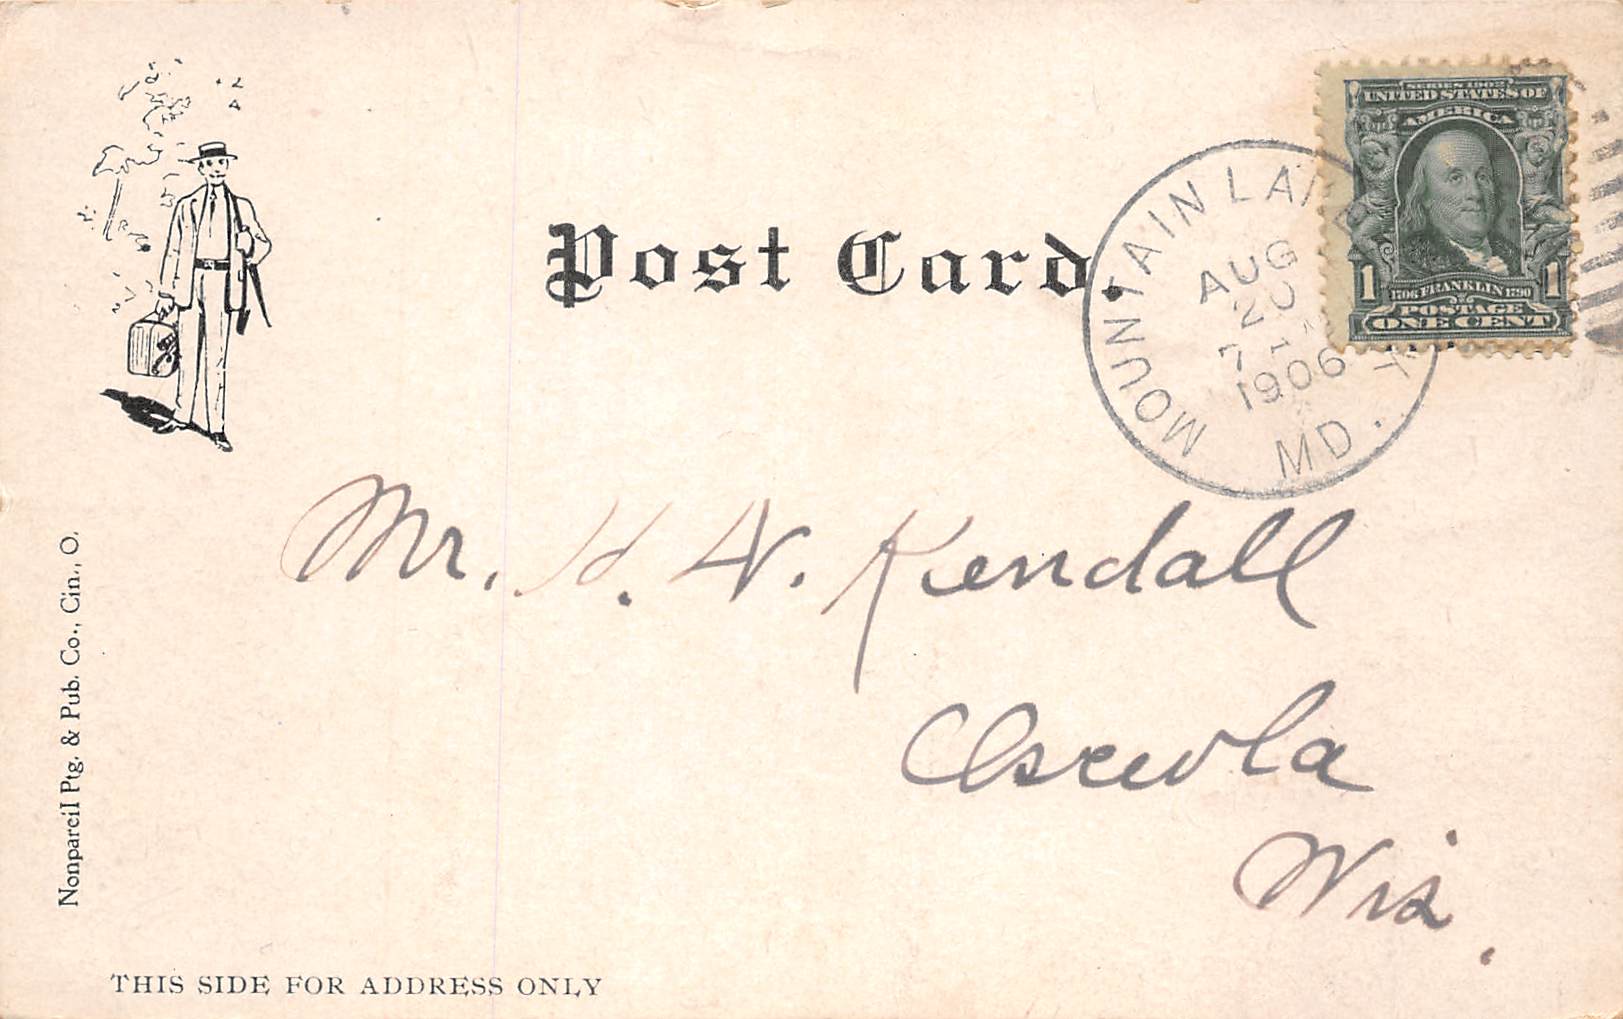 SERIES 1902
UNITED STATES OF
AMERICA
1 1
1706 FRANKLIN 1790
POSTAGE
ONE CENT
Post Card.
MOUNTAIN LAKE
AUG
20
7
1906
MD.
Mr. H. W. Kendall
Osceola
Wis.
Nonpareil Ptg. & Pub. Co., Cin., O.
THIS SIDE FOR ADDRESS ONLY